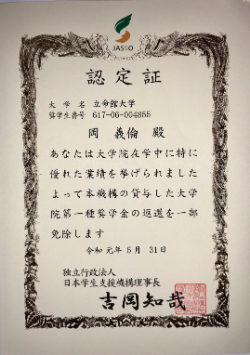 JASSO
認定証
大学名 立命館大学
奨学生番号 617-06-004855
岡 義倫 殿
あなたは大学院在学中に特に
優れた業績を挙げられました
よって本機構の貸与した大学
院第一種奨学金の返還を一部
免除します
令和元年5月31日
独立行政法人
日本学生支援機構理事長
吉岡知哉